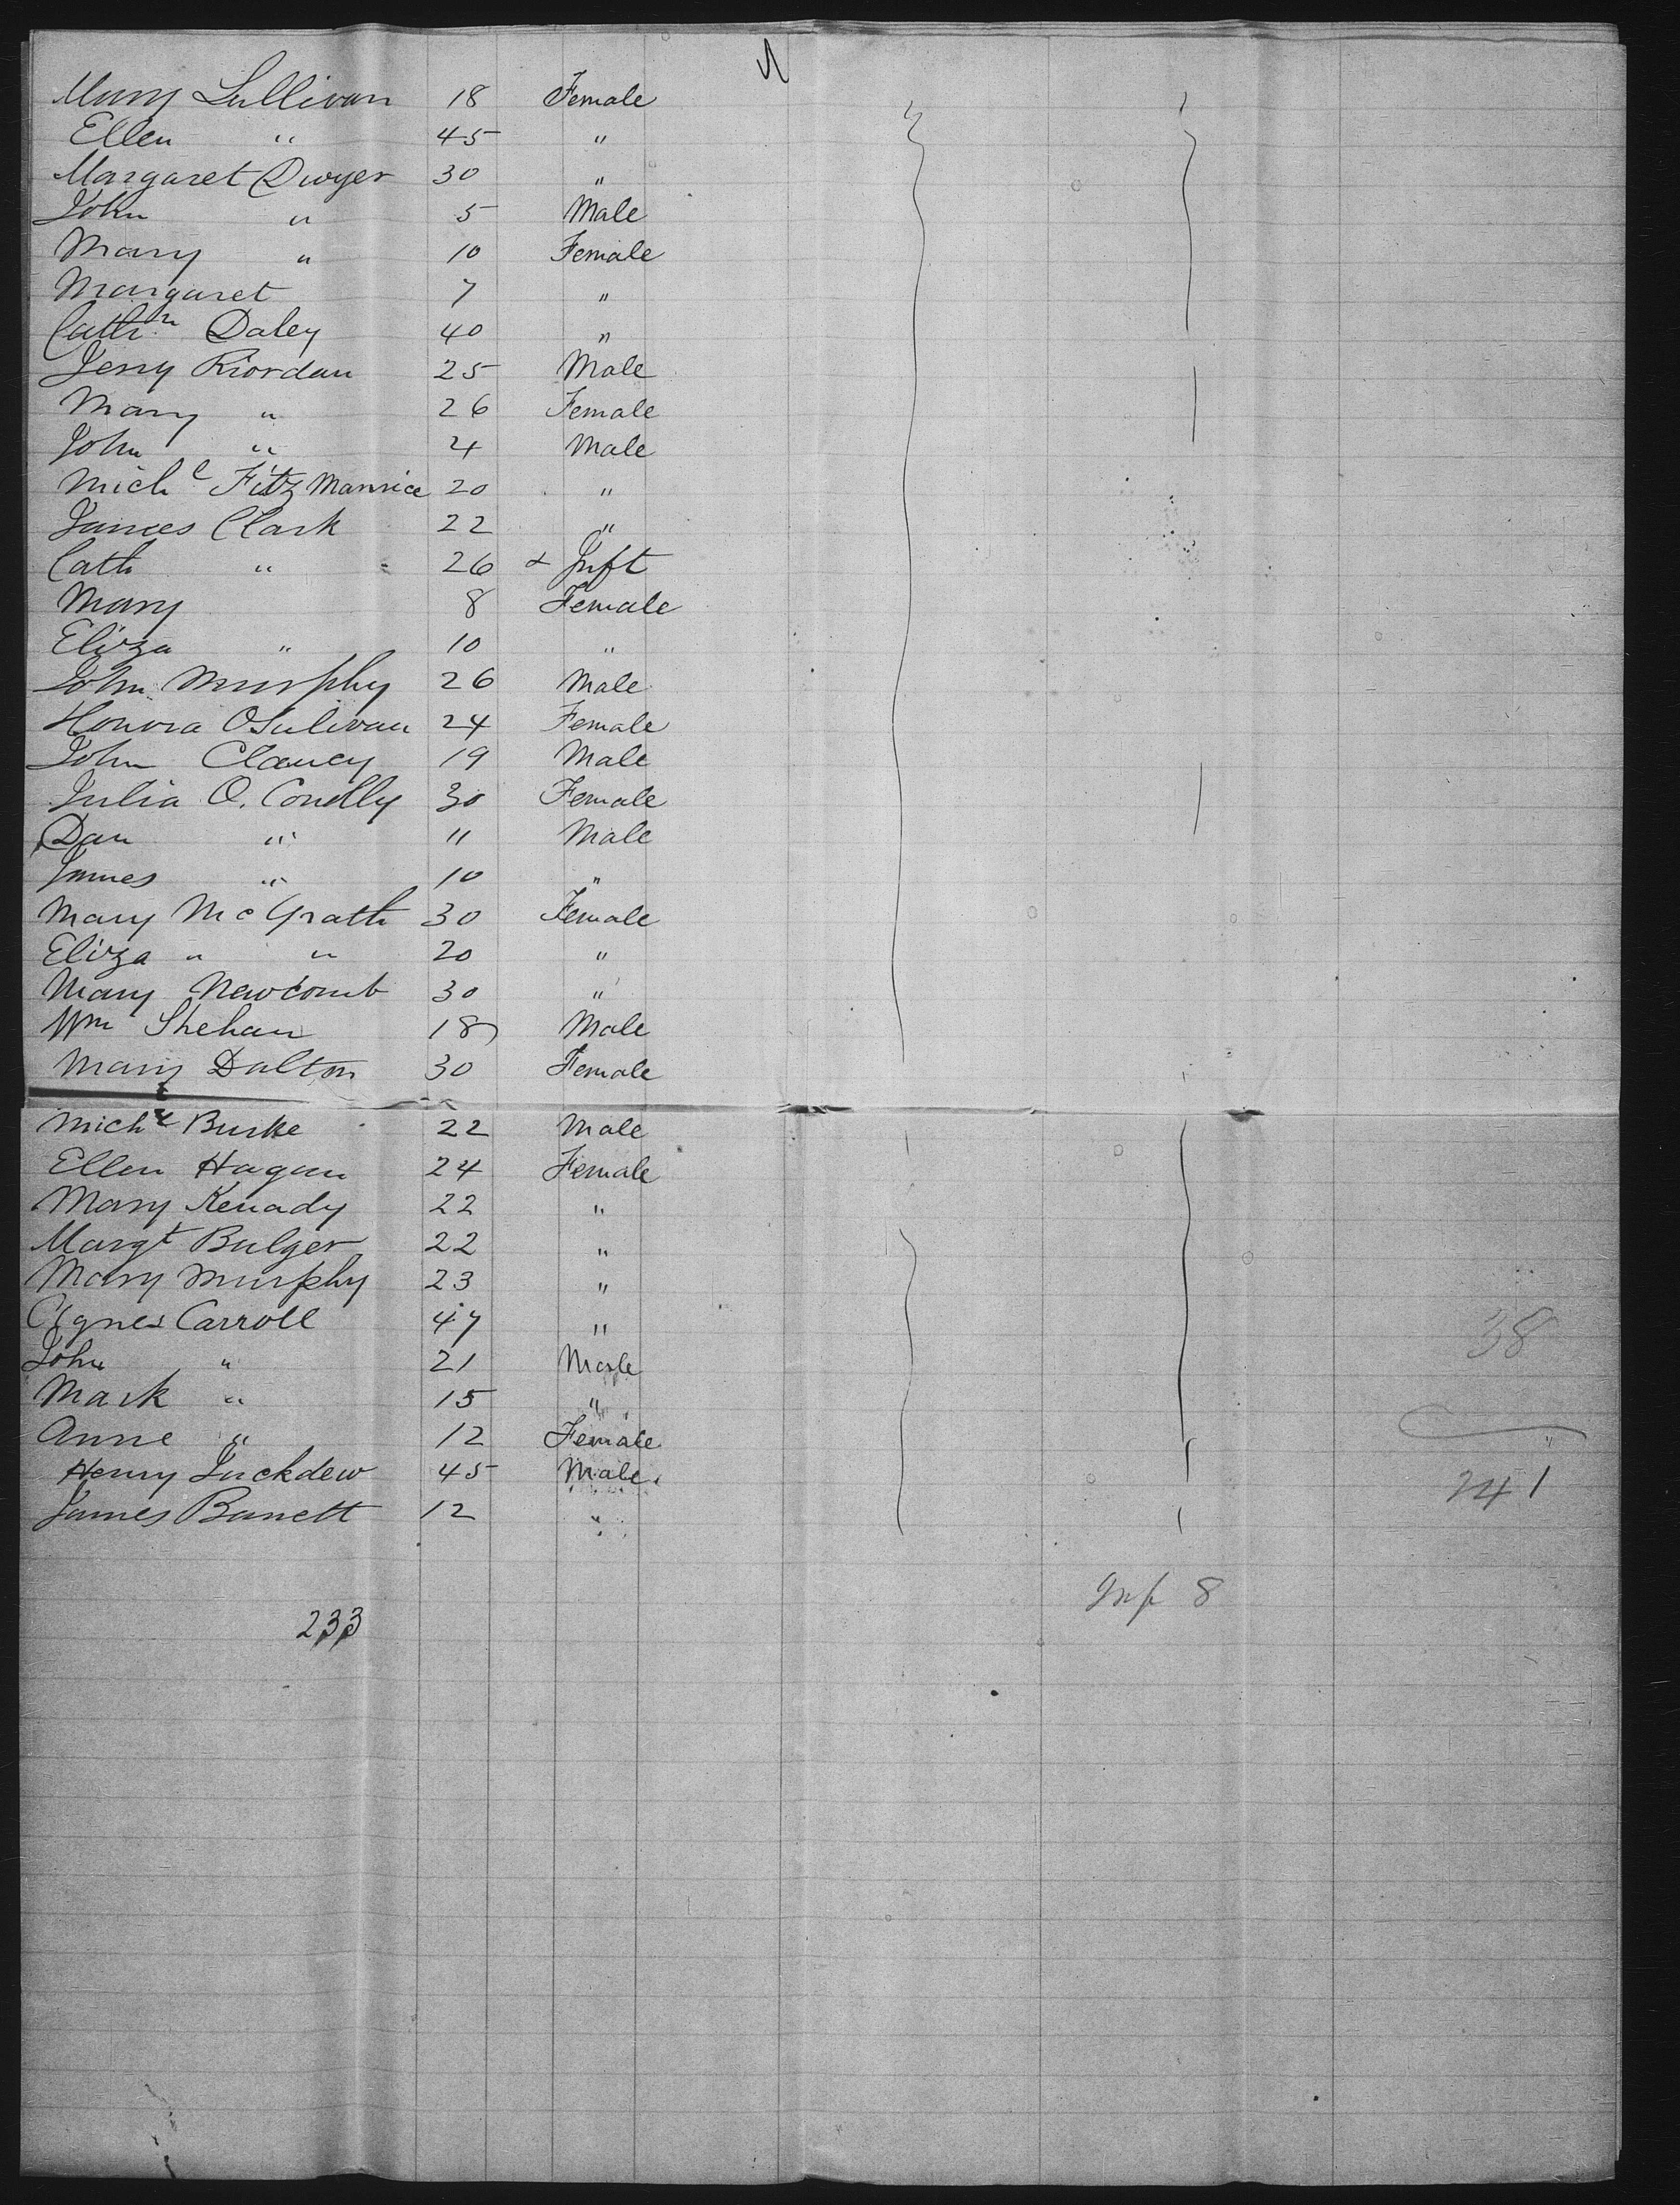 Mary Sullivan 18 Female
Ellen " 45 "
Margaret Dwyer 30 "
John " 5 Male
Mary " 10 Female
Margaret 7 "
Cathn Daley 40 "
Jerry Riordan 25 Male
Mary " 26 Female
John " 4 Male
Michl Fitz Maurice 20 "
James Clark 22 "
Cath " 26 + Inft
Mary 8 Female
Eliza " 10 "
John Murphy 26 Male
Honora OSulivan 24 Female
John Clancy 19 Male
Julia O. Conolly 30 Female
Dan " 11 Male
James " 10 "
Mary McGrath 30 Female
Eliza " " 20 "
Mary Newcomb 30 "
Wm Shehan 18 Male
Mary Dalton 30 Female
Michl Burke 22 Male
Ellen Hagan 24 Female
Mary Kenady 22 "
Margt Bulger 22 "
Mary Murphy 23 "
Agnes Carroll 47 "
38
John " 21 Male
Mark " 15 "
Anne " 12 Female
Henry Luckdew 45 Male.
241
James Barrett 12 "
Inf 8
233